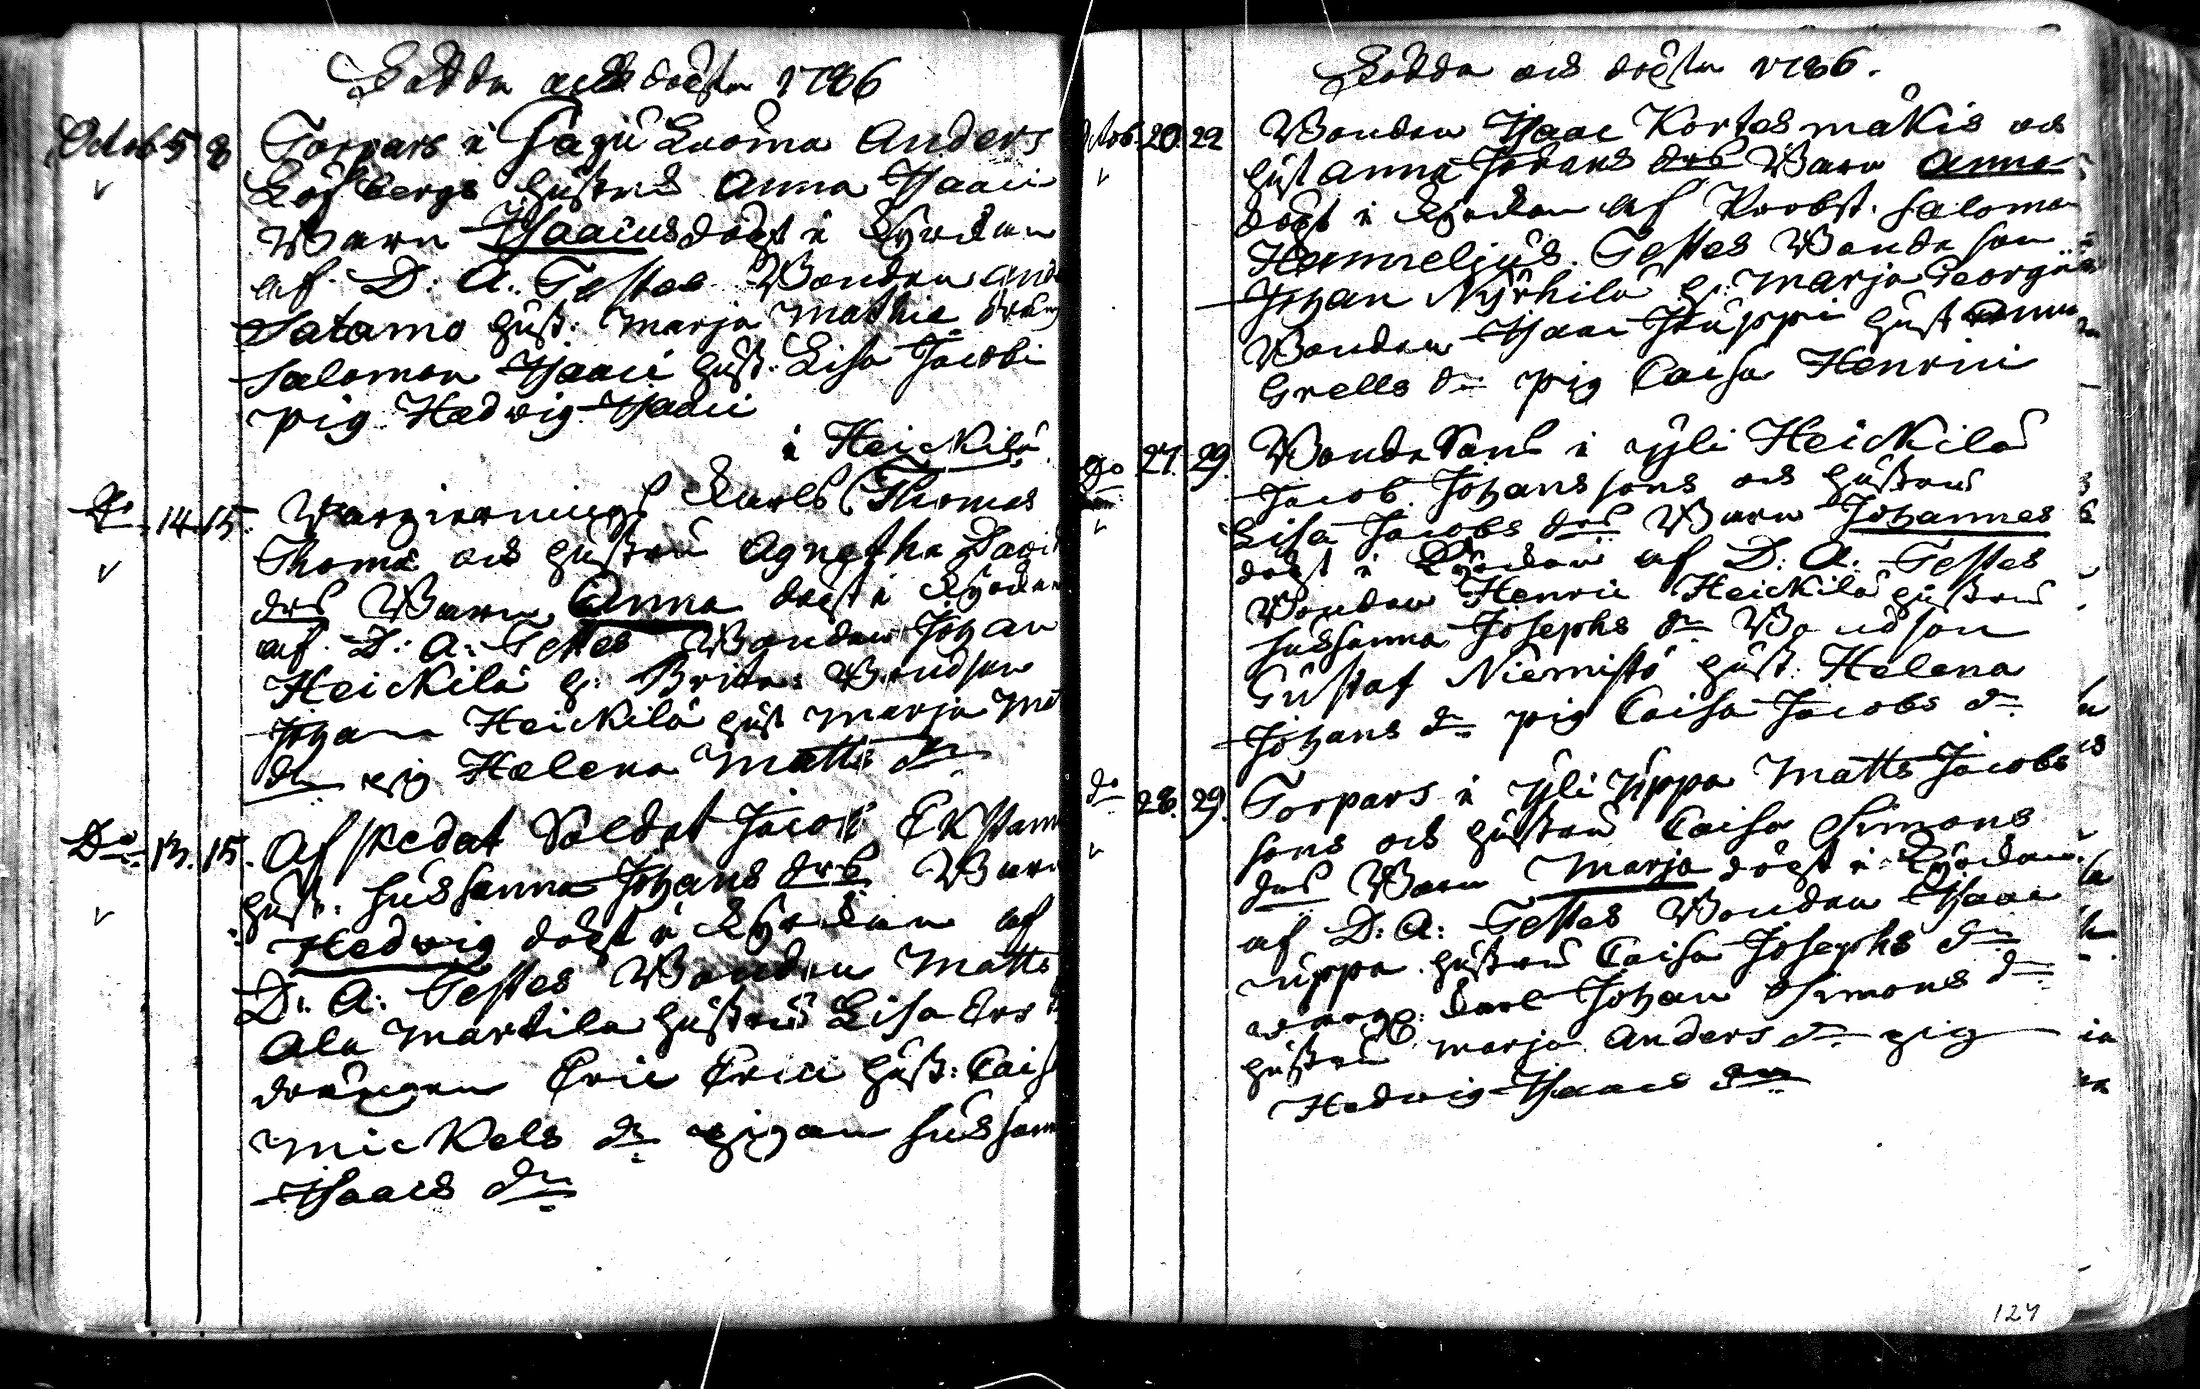 Födda och döpta 1786
Octob 5 8 Torpars i Jagu Luoma Anders
Löfbergs hustrus Anna Isaaci
Barn Isaacus döpt i Kyrckan
af D: A: Testes Bonden And
Salamo hust: Marja Mathie dräng
Salomon Isaaci hust. Lisa Jacobi
pig Hedvig Isaaci
i Heickilä
do 14 15. Karls Thomas
Thome och hustru Agnetha David
drs Barn Anna döpt i Kyrckan
af D: A: Testes Bonden Johan
Heickilä h: Brita: Bondson
Johan Heickilä hust Marja Mat
dr pig Helena Matts dr
Do 13. 15. Afskedat Soldat Jacob Ekstam
hust. Sussanna Johans drs Barn
Hedwig döpt i Kyrckan af
D: A: Testes Bonden Matts
Ala Markila hustru Lisa Ers d
drängen Eric Erici hust: Cais
Mickels dr pigan Sussann
Isaacs dr
Födda och döpta 1786.
Octob. 20. 22 Bonden Isaac Kortesmäkis och
hust Anna Johans drs Barn Anna
döpt i Kyrckan af Probst. Salomon
Hanneljus. Testes Bonde son
Johan Nyrhilä h: Marja Georgii
Bonden Isaac Juppi hust Anna
Grells dr pig Caisa Henrici
Do 27. 29. Bonde Sons i yli Heickilä
Jacob Johanssons och hustrus
Lisa Jacobs drs Barn Johannes
döpt i Kyrckan af D: A: Testes
Bonden Henric Heickilä hustrus
Sussanna Josephs dr Bondson
Gustaf Niemistö hust. Helena
Johans dr pig Caisa Jacobs dr
do 28. 29. Torpars i yli Uppa Matts Jacobs
sons och hustrus Caisa Simons
drs Barn Marja döpt i Kyrckan
af D: A: Testes Bonden Isaac
Uppa hustrus Caisa Josephs dr
Karl Johan Simons dr
hustru Marja Anders dr pig
Hedwig Isaacs dr
127